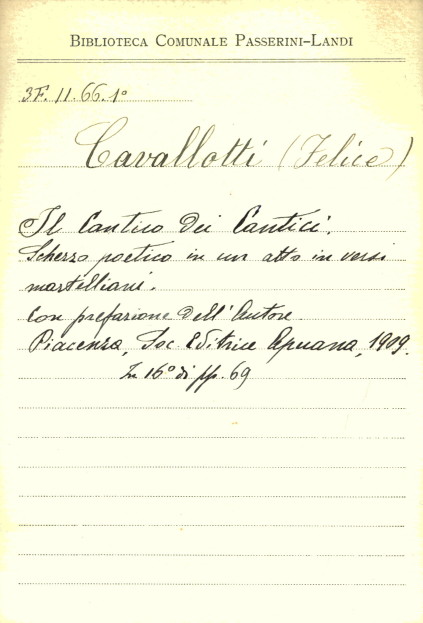 BIBLIOTECA COMUNALE PASSERINI-LANDI
3F. II. 66. 1º
Cavallotti (Felice)
Il Cantico Dei Cantici.
Scherzo poetico in un atto in versi
martelliani.
Con prefazione dell'Autore.
Piacenza, Soc. Editrice Apuana, 1909.
In 16º di pp. 69